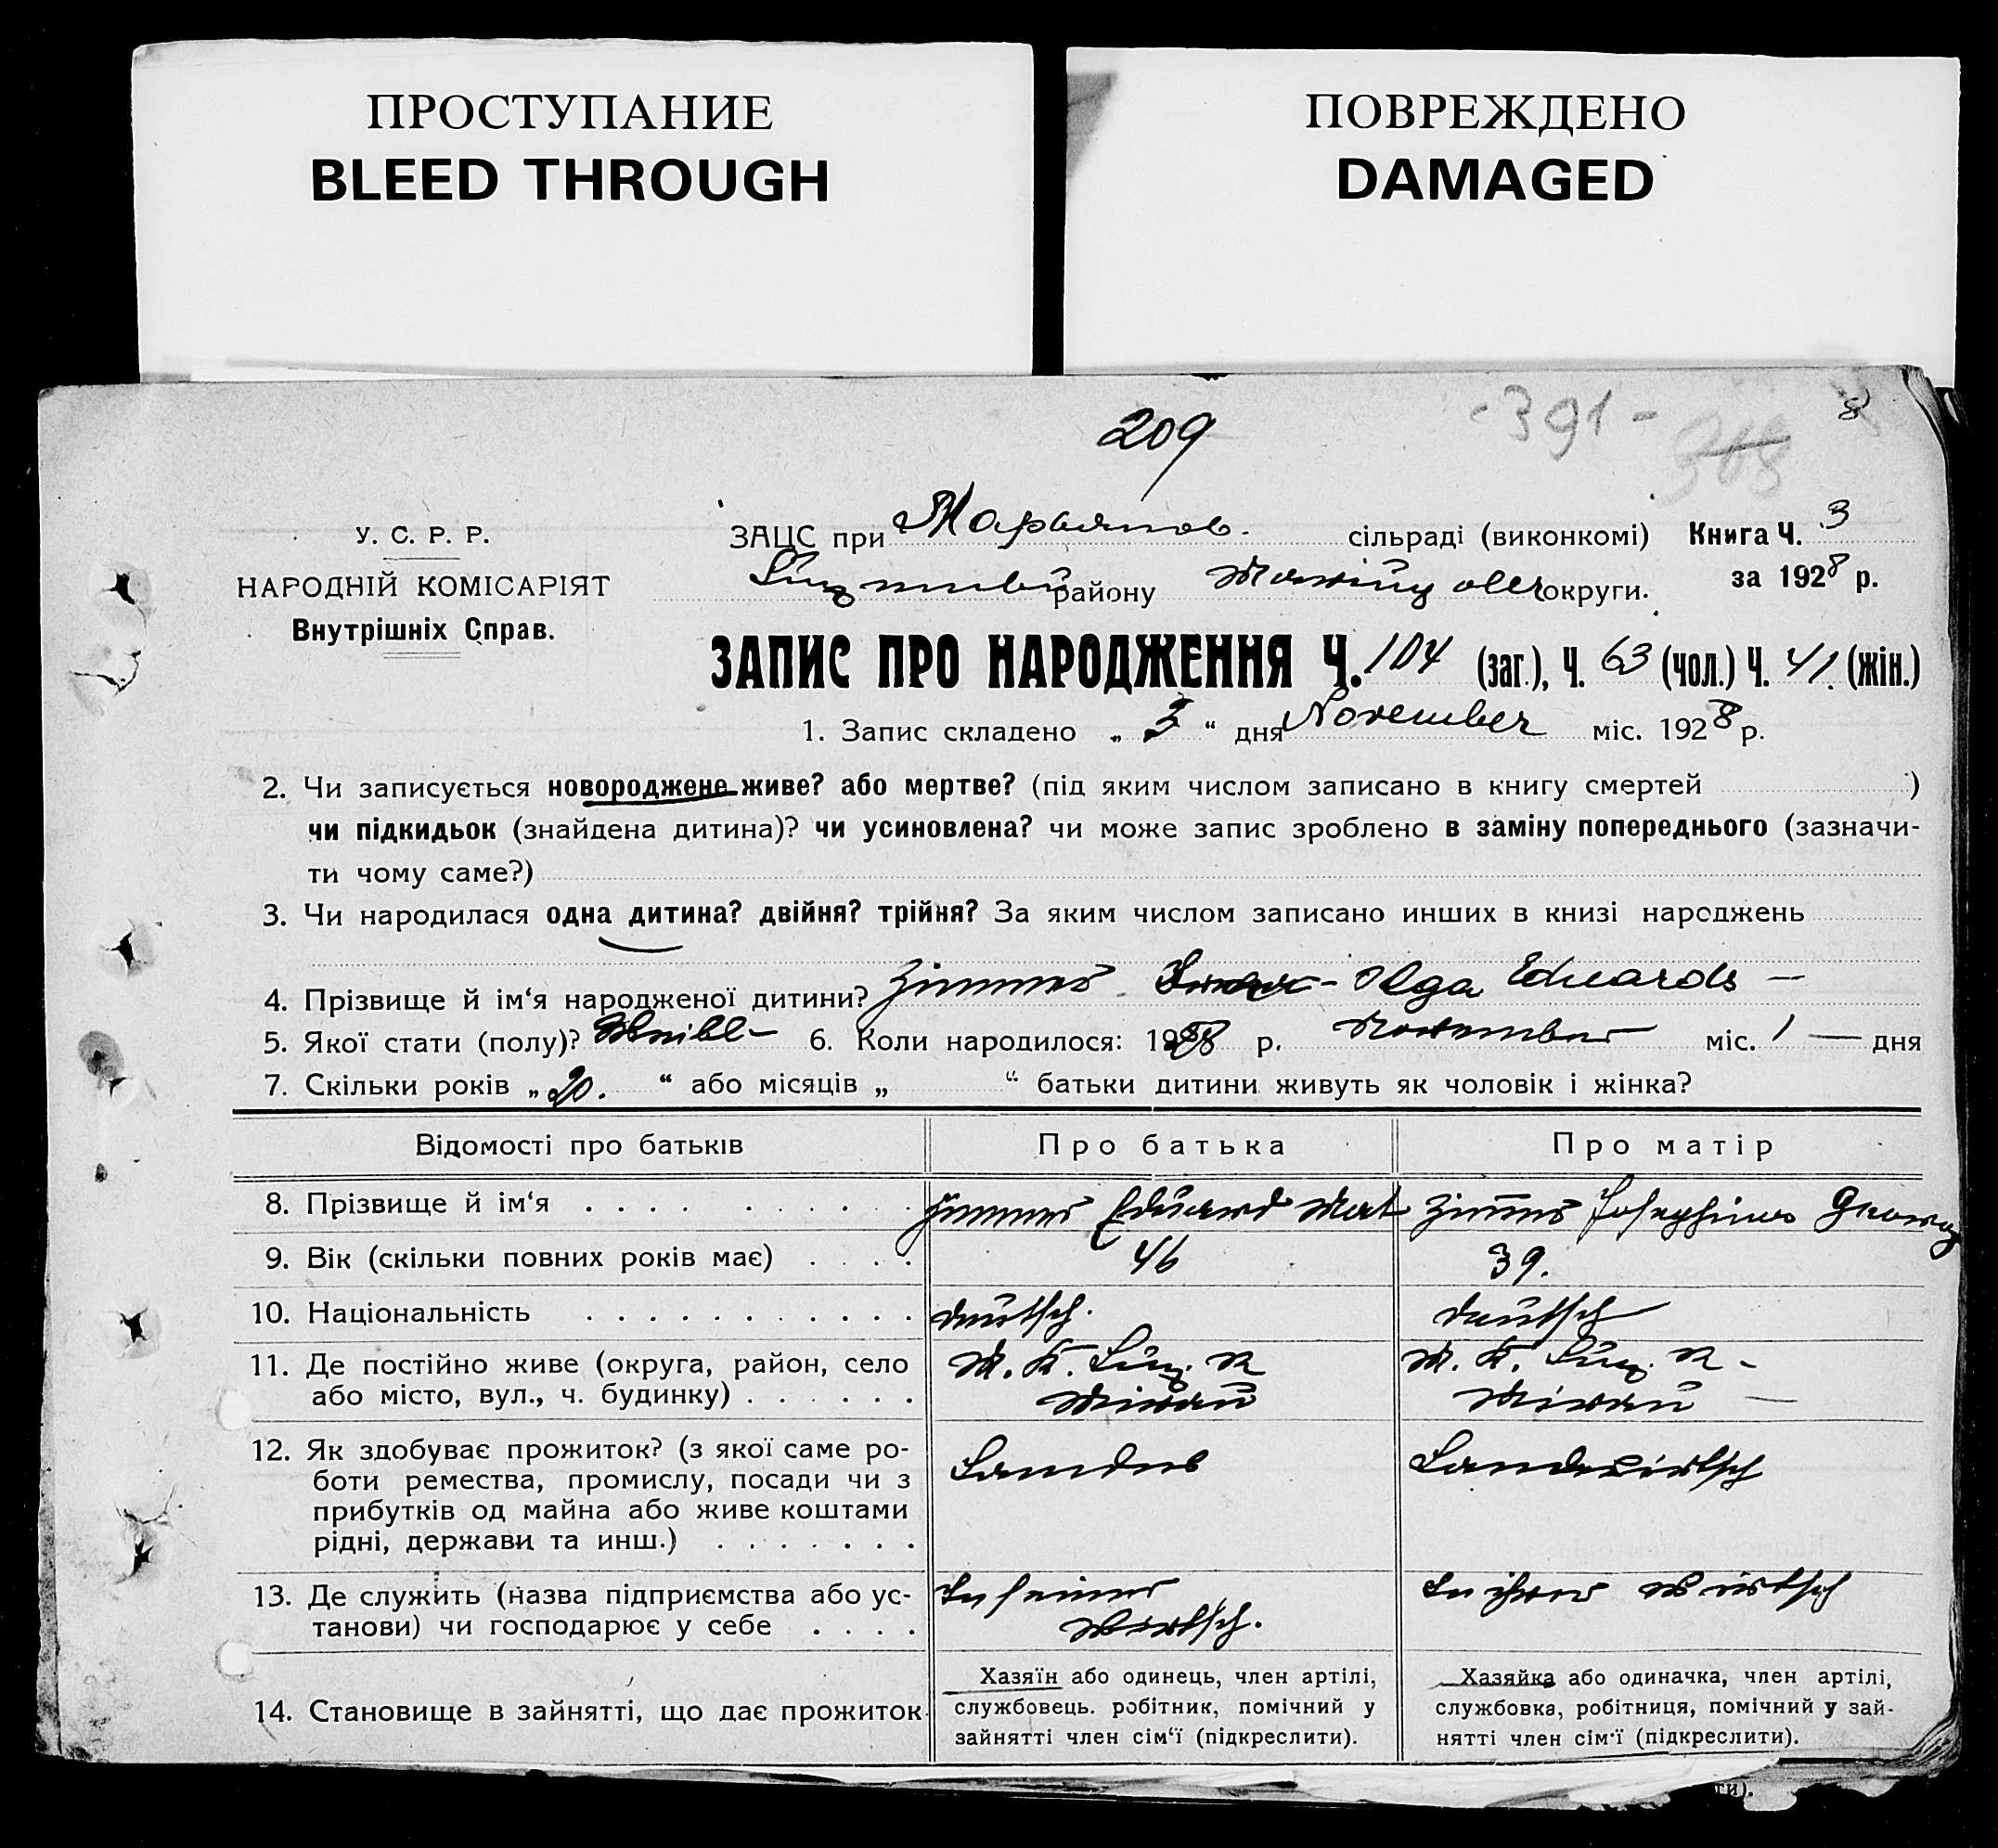 ПРОСТУПАНИЕ
BLEED THROUGH
ПОВРЕЖДЕНО
DAMAGED
209
-391-
8
У. С. Р. Р.
НАРОДНІЙ КОМІСАРІЯТ
Внутрішніх Справ.
ЗАЦС при Марьянов. сільраді (виконкомі) Книга Ч. 3
району округи. за 1928 р.
ЗАПИС ПРО НАРОДЖЕННЯ Ч. 104 (заг.), Ч. 63 (чол.) Ч. 41. (жін.)
1. Запис складено „ 3 “ дня November міс. 1928 р.
2. Чи записується новороджене живе? або мертве? (під яким числом записано в книгу смертей )
чи підкидьок (знайдена дитина)? чи усиновлена? чи може запис зроблено в заміну попереднього (зазначи-
ти чому саме?)
3. Чи народилася одна дитина? двійня? трійня? За яким числом записано инших в книзі народжень
4. Прізвище й ім‘я народженої дитини? Zimmer Olga Eduards —
5. Якої стати (полу)? Weibl- 6. Коли народилося: 1928 р. November міс. 1 — дня
7. Скільки років „ 20. “ або місяців „ “ батьки дитини живуть як чоловік і жінка?
Відомості про батьків
Про батька
Про матір
8. Прізвище й ім‘я . . . . . . . . . .
Zimmer Eduard Mat
Zimmer Josephine Georg
9. Вік (скільки повних років має) . . . .
46
39.
10. Національність . . . . . . . . . . .
deutsch.
deutsch
11. Де постійно живе (округа, район, село
або місто, вул., ч. будинку) . . . . . .
M. K. Luz. R
Mirau
M. K. Luz. R -
Mirau —
12. Як здобуває прожиток? (з якої саме ро-
боти ремества, промислу, посади чи з
прибутків од майна або живе коштами
рідні, держави та инш.) . . . . . . .
Landwirtsch
13. Де служить (назва підприємства або ус-
танови) чи господарює у себе . . . .
In seiner
Wirtsch.
In ihrer Wirtsch
14. Становище в зайнятті, що дає прожиток.
Хазяїн або одинець, член артілі,
службовець. робітник, помічний у
зайнятті член сім‘ї (підкреслити).
Хазяйка або одиначка, член артілі,
службовка, робітниця, помічний у зай-
нятті член сім‘ї (підкреслити).
ти).